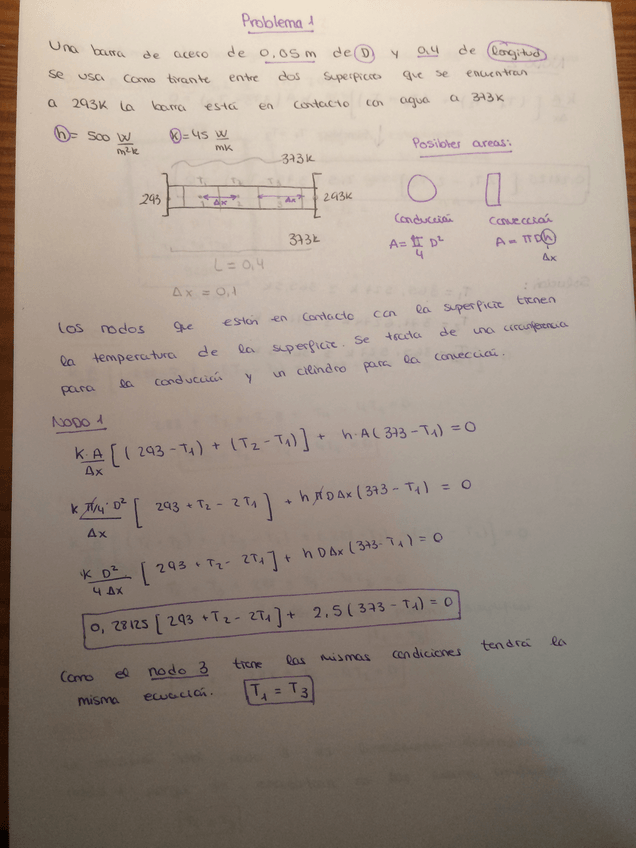 Problema 1
Una barra de acero de 0,05 m de D y 0,4 de longitud
se usa como tirante entre dos superficies que se encuentran
a 293K La barra está en contacto con agua a 373K
h = 500 W/m²K K = 45 W/mK
Posibles areas:
373K
293 T₁ T₂ T₃ 293K
1 Δx 2 3 Δx
373K
L = 0,4
Δx = 0,1
Conducción Convección
A = π/4 D² A = πDh
Δx
Los nodos que están en contacto con la superficie tienen
la temperatura de la superficie. Se trata de una circunferencia
para la conducción y un cilindro para la convección.
NODO 1
K·A/Δx [(293-T₁) + (T₂-T₁)] + h·A(373-T₁) = 0
K π/4·D²/Δx [293 + T₂ - 2T₁] + h π D Δx (373-T₁) = 0
K D²/4Δx [293 + T₂ - 2T₁] + h D Δx (373-T₁) = 0
0,28125 [293 + T₂ - 2T₁] + 2,5 (373-T₁) = 0
Como el nodo 3 tiene las mismas condiciones tendrá la
misma ecuación. T₁ = T₃